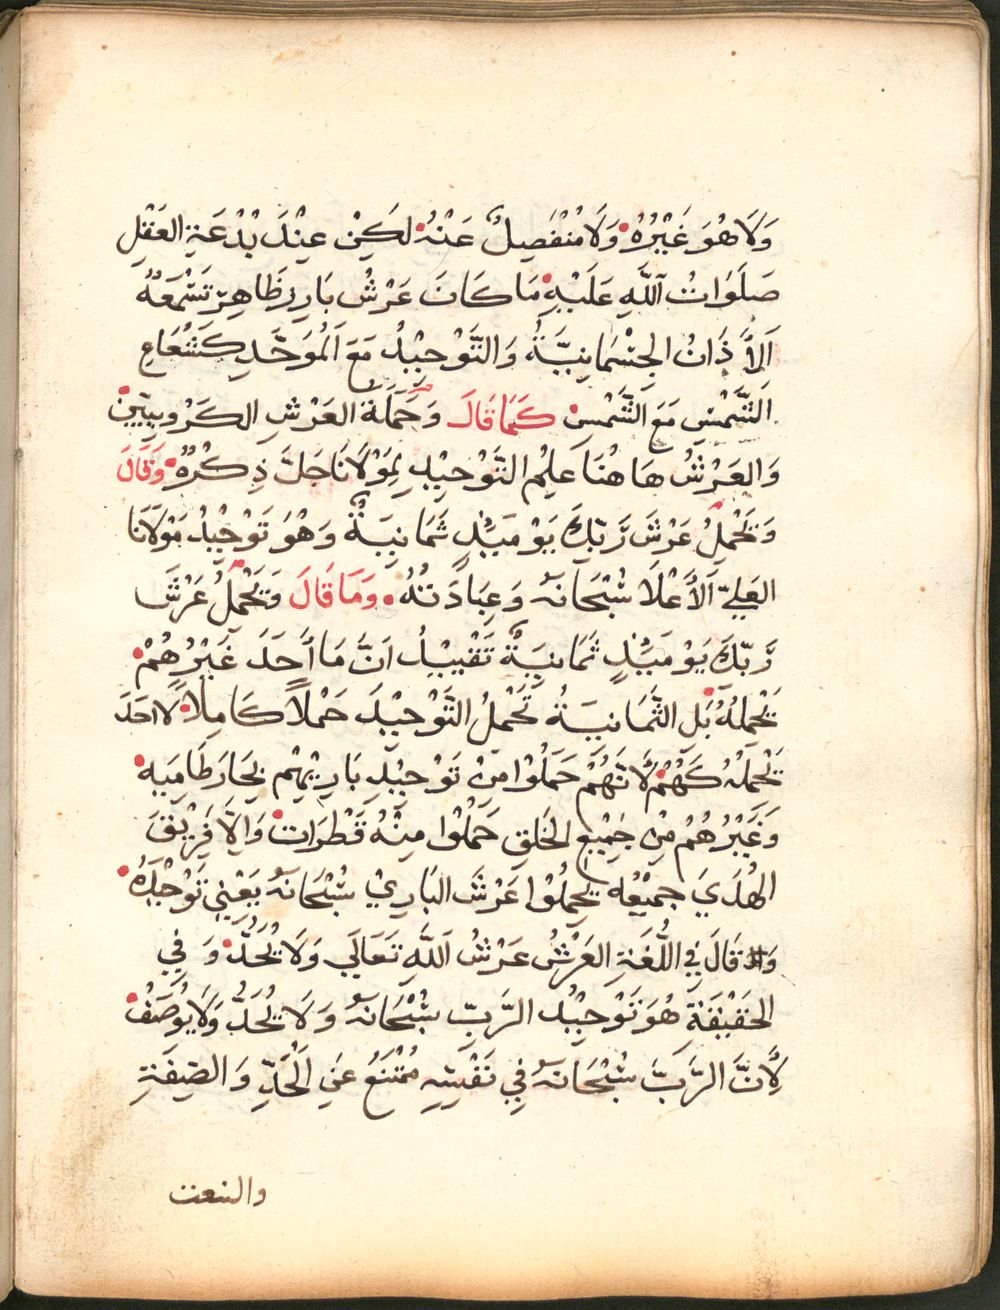 وَلَا هُوَ غَيْرُهُ وَلَا مُنْفَصِلٌ عَنْهُ لَكِنْ عِنْدَ بُدْعَةِ العَقْلِ
صَلَوَاتُ اللَّهِ عَلَيْهِ مَا كَانَ عَرْشُ بَارِ ظَاهِرٌ تَسْمَعُهُ
اَلاَّ ذَاتُ الجِسْمَانِيَّةُ وَالتَّوْحِيْدُ مَعَ اَلمُوَحَّدِ كَشُعَاعِ
الشَّمْسِ مَعَ الشَّمْسِ كَمَا قَالَ وَحَمَلَةُ العَرْشِ الكَرُوبِيِيْنَ
وَالعَرْشُ هَا هُنَا عِلْمُ التَّوْحِيْدِ لِمَوْلَانَا جَلَّ ذِكْرُهُ وَقَالَ
وَيَحْمِلُ عَرْشَ رَبِّكَ يَوْمَيِذٍ ثَمَانِيَةٌ وَهُوَ تَوْحِيْدُ مَوْلَانَا
العَلِيّ اَلأَعْلَا سُبْحَانَهُ وَعِبَادَتُهُ وَمَا قَالَ وَيَحْمِلُ عَرْشَ
رَبِّكَ يَوْمَيِذٍ ثَمَانِيَةٌ تَقْيِيْدُ اَنَّ مَا أَحَدَ غَيْرُهُمْ
يَحْمِلُهُ بَلِ الثَّمَانِيَةُ تَحْمِلُ التَّوْحِيْدَ حَمْلاً كَامِلاً لَا احَدَ
يَحْمِلُهُ كَهُمْ لأَنَّهُمْ حَمَلُوا مِنْ تَوْحِيْدِ بَارِيْهِم بِحَارَ طَامِيَه
وَغَيْرُهُمْ مِنْ جَمِيْعِ الخَلْقِ حَمَلُوا مِنْهُ قَطَرَاتْ وَاِلَّا فَرِيْقَ
الهُدَي جَمِيْعُه يَحْمِلُوا عَرْشَ البَارِيْ سُبْحَانَهُ يَعْنِي تَوْحِيْدُهُ
وَقَالَ فِي اللُّغَةِ العَرْشُ عَرْشُ اَللَّهِ تَعَالَي وَلَا يُحَدُّ وَفِي
الحَقِيْقَةِ هُوَ تَوْحِيْدُ الرَّبِّ سُبْحَانَهُ وَلَا يُحَدُّ وَلَا يُوصَفُ
لأَنَّ الرَّبَّ سُبْحَانَهُ فِي نَفْسِهِ مُمْتَنِعٌ عَنِ الْحَدِّ وَالصِفَةِ
والنعت